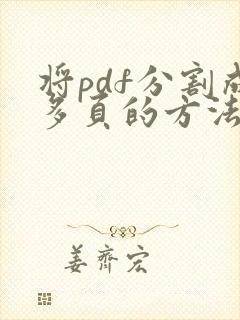 将pdf分割成
多页的方法
姜齐宏